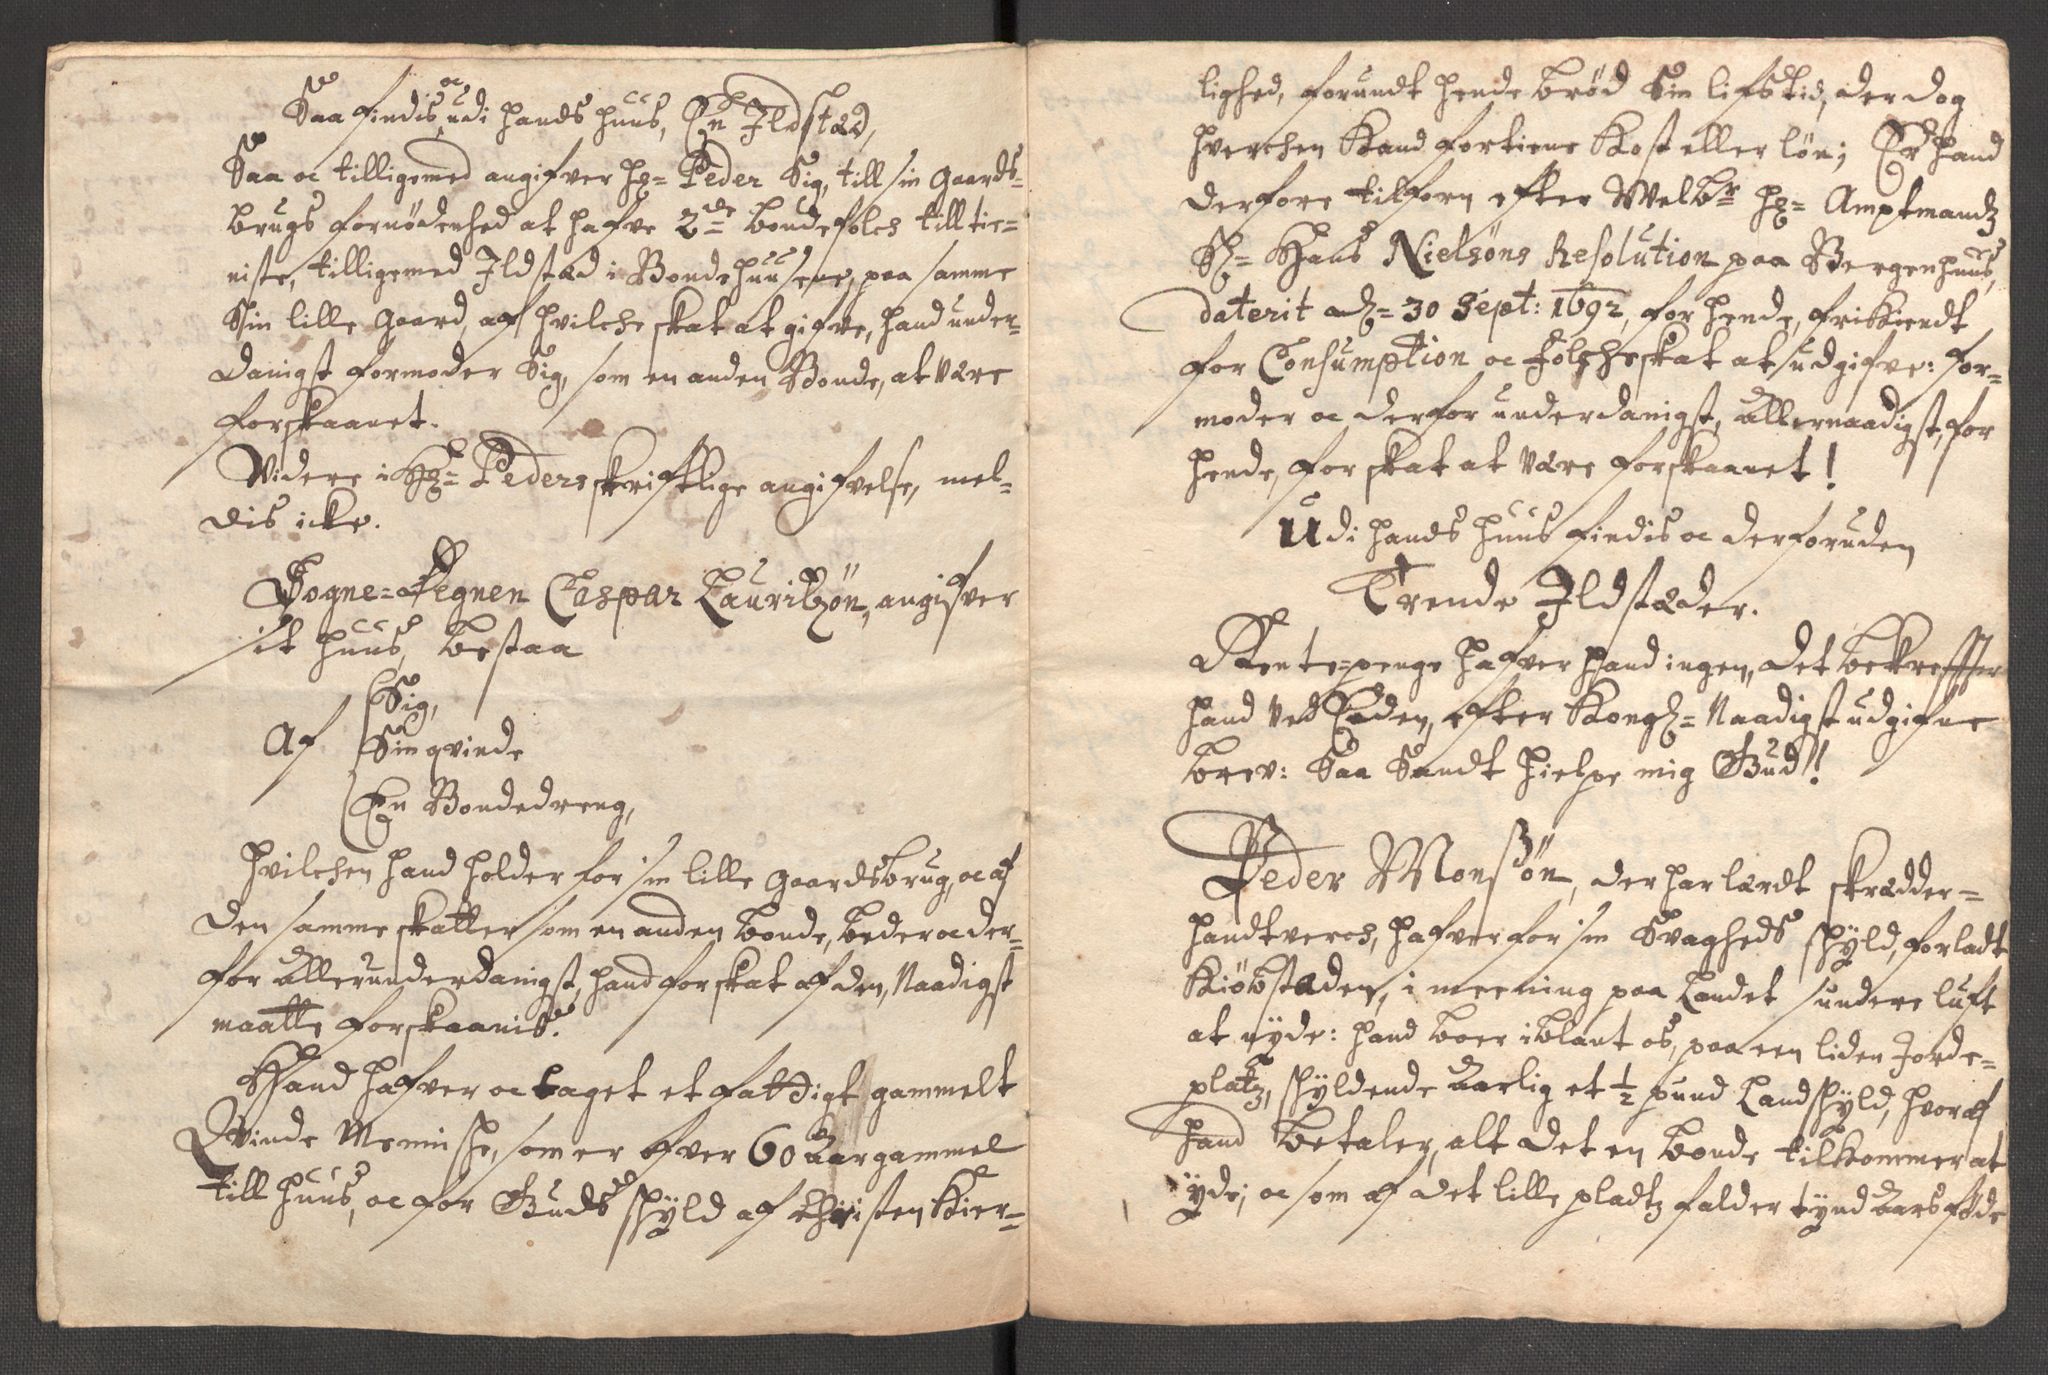 Saa findis oc udi hands huus, En Ildstæd,
Saa oc tilligemed angifver Hr= Peder Sig, till sin gaards-
brugs fornødenhed at hafve 2de bondefolck till tie-
niste, tilligemed Ildstæd i Bondehuusene, paa samme
Sin lille gaard, af hvilche skat at gifve, hand under-
danigst formoder Sig, som en anden Bonde, at være
forskaanet.
Videre i Hr= Peders skriftlige angifvelse, mel-
dis icke.
Sogne=Degnen Caspar Lauritzøn, angifver
sit huus, bestaa
Af
Sig,
Sin qvinde
En Bondedreng,
hvilchen hand holder for sin lille gaardsbrug, oc af
den samme skatter som en anden bonde, beder oc der-
for allerunderdanigst, hand for skat af den, Naadigst
maatte forskaanis.
Hand hafver oc taget et fattdigt gammelt
Qvinde Menniske, som er ofver 60 aar gammel
till huus, oc for Guds skyld af christen kier-
lighed, forundt hende brød Sin lifstid, der dog
hverchen kand fortiene kost eller løn; Er hand
derfore tilforn efter Welbr Hr= Amptmandz
Sr= Hans Nielsøns Resolution paa Bergenhuus,
daterit ad= 30 Sept: 1692, for hende, frikiendt
for Consumption oc folcheskat at udgifve: for-
moder oc derfor underdanigst, allernaadigst, for
hende, for skat at være forskaanet!
Udi hands huus findis oc derforuden
Trende Ildstæder.
Rente=penge hafver hand ingen, det bekreffter
hand ved Eeden, efter Kongl= Naadigst udgifne
brev: Saa Sandt hielpe mig Gud!
Peder Monsøn, der har lærdt skrædder-
handtverch, hafver for sin Svagheds skyld, forladt
Kiøbstæden, i meening paa Landet sundere luft
at nyde: hand boer iblant os, paa een liden Jorde-
platz, skyldende aarlig et ½ pund Landskyld, hvoraf
hand betaler, alt det en bonde tilkommer at
yde; oc som af det lille pladtz falder tynd aarsføde